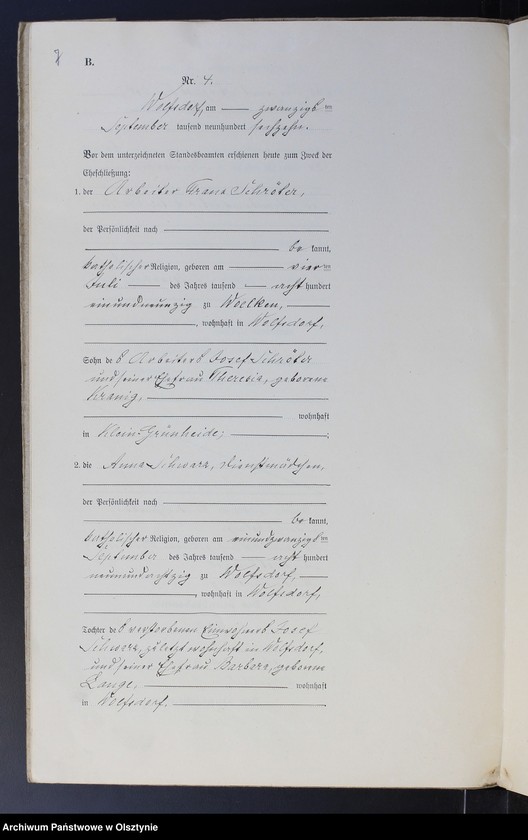 8
B.
Nr. 4.
Wolfsdorf, am zwanzigs ten
September tausend neunhundert sechzehn.
Vor dem unterzeichneten Standesbeamten erschienen heute zum Zweck der
Eheschließung:
1. der Arbeiter Franz Schröter,
der Persönlichkeit nach
be kannt,
katholischer Religion, geboren am vier ten
Juli des Jahres tausend acht hundert
einundneunzig zu Woelken,
, wohnhaft in Wolfsdorf,
Sohn des Arbeiters Josef Schröter
und seiner Ehefrau Theresia, geborene
Kranig,
wohnhaft
in Klein-Grünheide;
2. die Anna Schwarz, Dienstmädchen,
der Persönlichkeit nach
be kannt,
katholischer Religion, geboren am einundzwanzigs ten
September des Jahres tausend acht hundert
neunundachtzig zu Wolfsdorf,
, wohnhaft in Wolfsdorf,
Tochter des verstorbenen Einwohners Josef
Schwarz, zuletzt wohnhaft in Wolfsdorf,
und seiner Ehefrau Barbara, geborene
Lange, wohnhaft
in Wolfsdorf.
Archiwum Państwowe w Olsztynie